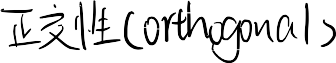 正交性(orthogonal)